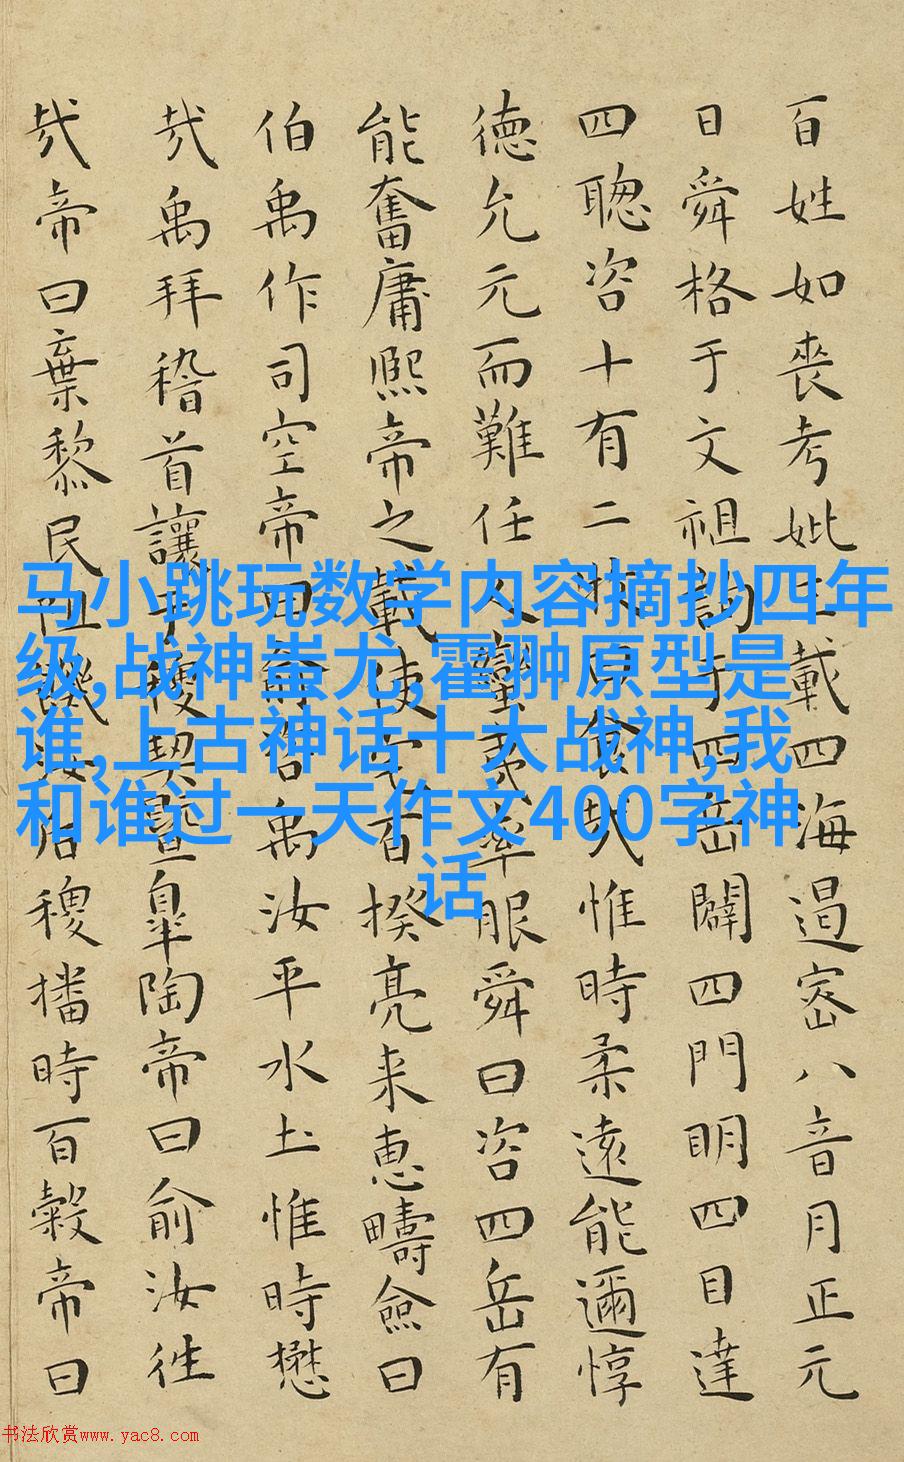 百姓如喪考妣三載四海遏密八音月正元
日舜格于文祖詢于四岳闢四門明四目達
四聰咨十有二牧曰食哉惟時柔遠能邇惇
德允元而難任人蠻夷率服舜曰咨四岳有
能奮庸熙帝之載使宅百揆亮采惠疇僉曰
伯禹作司空帝曰俞咨禹汝平水土惟時懋
哉禹拜稽首讓于稷契暨皐陶帝曰俞汝往
哉帝曰棄黎民阻飢汝后稷播時百穀帝曰
马小跳玩数学内容摘抄四年
级,战神蚩尤,霍翀原型是
谁,上古神话十大战神,我
和谁过一天作文400字神
话
书法欣赏www.yac8.com